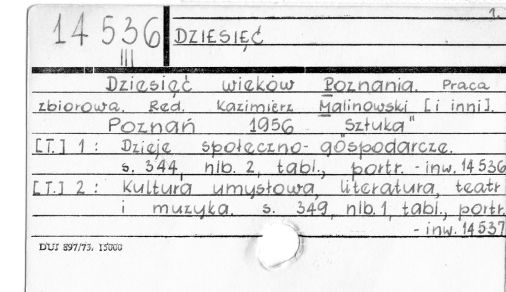 1.
14 536
III
DZIESIĘĆ
Dziesięć wieków Poznania. Praca
zbiorowa. Red. Kazimierz Malinowski [i inni].
Poznań 1956 "Sztuka"
[T.] 1 : Dzieje społeczno-gospodarcze.
s. 344, nlb. 2, tabl., portr. - inw. 14 536
[T.] 2 : Kultura umysłowa, literatura, teatr
i muzyka. s. 349, nlb. 1, tabl., portr.
- inw. 14 537
DUJ 897/73. 15000